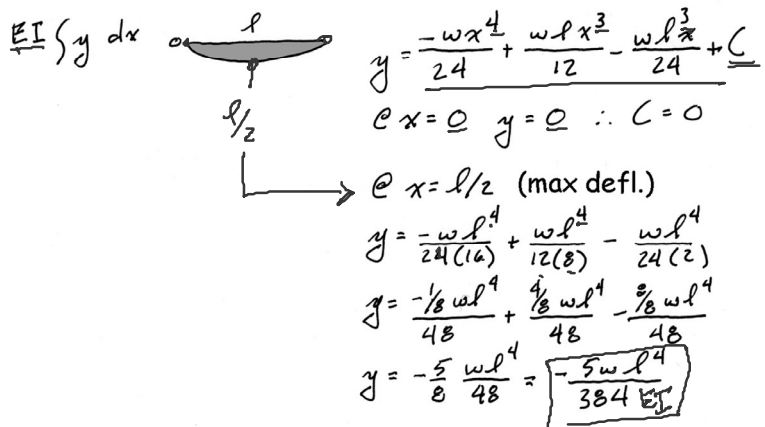 EI ∫ y dx
l
l/2
y = -wx⁴/24 + wlx³/12 - wl³x/24 + C
@ x = 0 y = 0 ∴ C = 0
@ x = l/2 (max defl.)
y = -wl⁴/24(16) + wl⁴/12(8) - wl⁴/24(2)
y = -1/8 wl⁴/48 + 4/8 wl⁴/48 - 8/8 wl⁴/48
y = -5/8 wl⁴/48 = -5wl⁴/384 EI